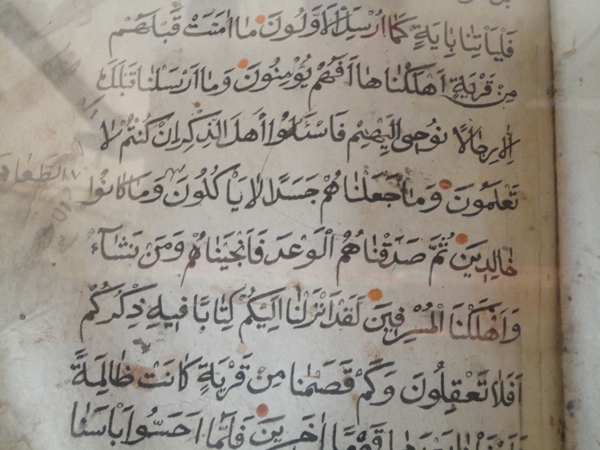 فَلْيَأْتِنَا بِايَةٍ كَمَا اُرْسِلَ الْاَوَّلُونَ مَا اٰمَنَتْ قَبْلَهُمْ
مِنْ قَرْيَةٍ اَهْلَكْنَاهَا اَفَهُمْ يُؤْمِنُونَ وَمَا اَرْسَلْنَا قَبْلَكَ
اِلَّا رِجَالًا نُوحِى اِلَيْهِمْ فَاسْئَلُوا اَهْلَ الذِّكْرِ اِنْ كُنْتُمْ لَا
تَعْلَمُونَ وَمَا جَعَلْنَاهُمْ جَسَدًا لَا يَاْكُلُونَ وَمَا كَانُوا
خَالِدِينَ ثُمَّ صَدَقْنَاهُمُ الْوَعْدَ فَاَنْجَيْنَاهُمْ وَمَنْ نَشَاءُ
وَاَهْلَكْنَا الْمُسْرِفِينَ لَقَدْ اَنْزَلْنَا اِلَيْكُمْ كِتَابًا فِيهِ ذِكْرُكُمْ
اَفَلَا تَعْقِلُونَ وَكَمْ قَصَمْنَا مِنْ قَرْيَةٍ كَانَتْ ظَالِمَةً
وَاَنْشَاْنَا بَعْدَهَا قَوْمًا اٰخَرِينَ فَلَمَّا اَحَسُّوا بَاْسَنَا